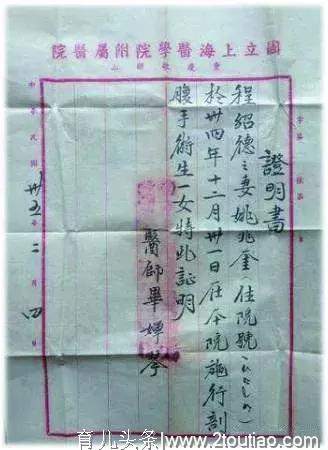 國立上海醫學院附屬醫院
重慶歌樂山
字第
證明書
程紹德之妻姚兆奎（住院號
於卅四年十二月卅一日在本院施行剖
腹手術生一女特此証明
醫師畢婷琴
中華民國卅五年二月四日
育儿头条/www.2toutiao.com